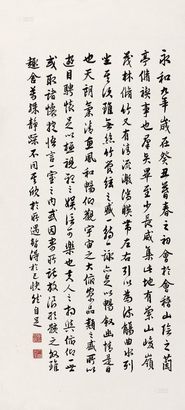 永和九年歲在癸丑暮春之初會於會稽山陰之蘭
亭脩稧事也羣賢畢至少長咸集此地有崇山峻嶺
茂林脩竹又有清流激湍映帶左右引以為流觴曲水列
坐其次雖無絲竹管絃之盛一觴一詠亦足以暢叙幽情是日
也天朗氣清惠風和暢仰觀宇宙之大俯察品類之盛所以
遊目騁懷足以極視聽之娛信可樂也夫人之相與俯仰一世
或取諸懷抱悟言一室之內或因寄所託放浪形骸之外雖
趣舍萬殊靜躁不同當其欣於所遇暫得於己快然自足